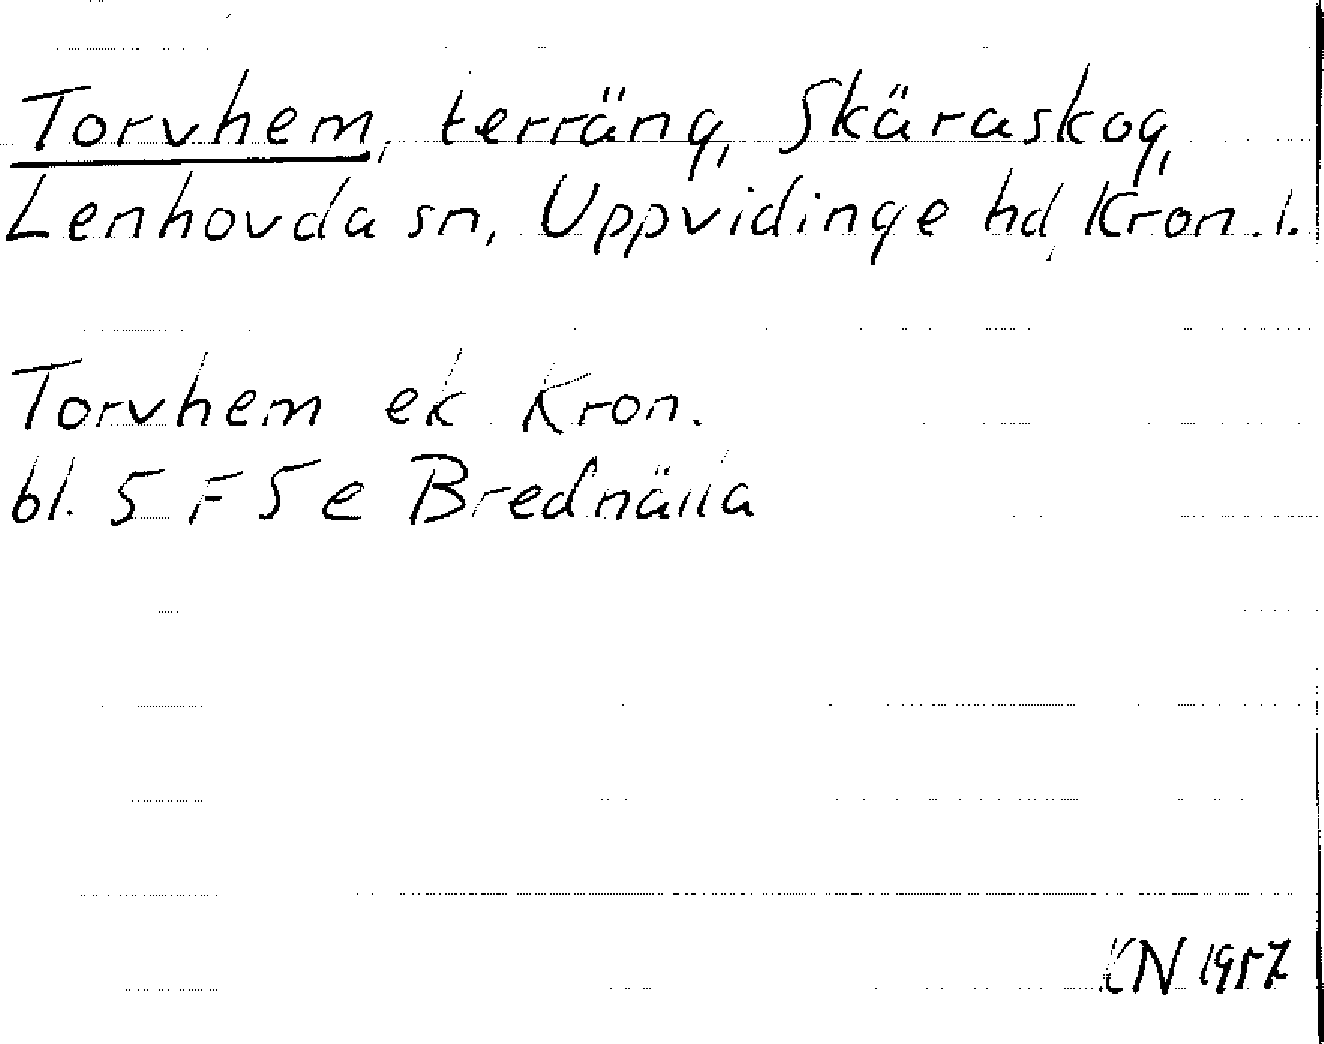 Torvhem, terräng, Skäraskog,
Lenhovda sn, Uppvidinge hd, Kron. l.
Torvhem ek Kron.
bl. 5 F 5 e Brednälla
KN 1957